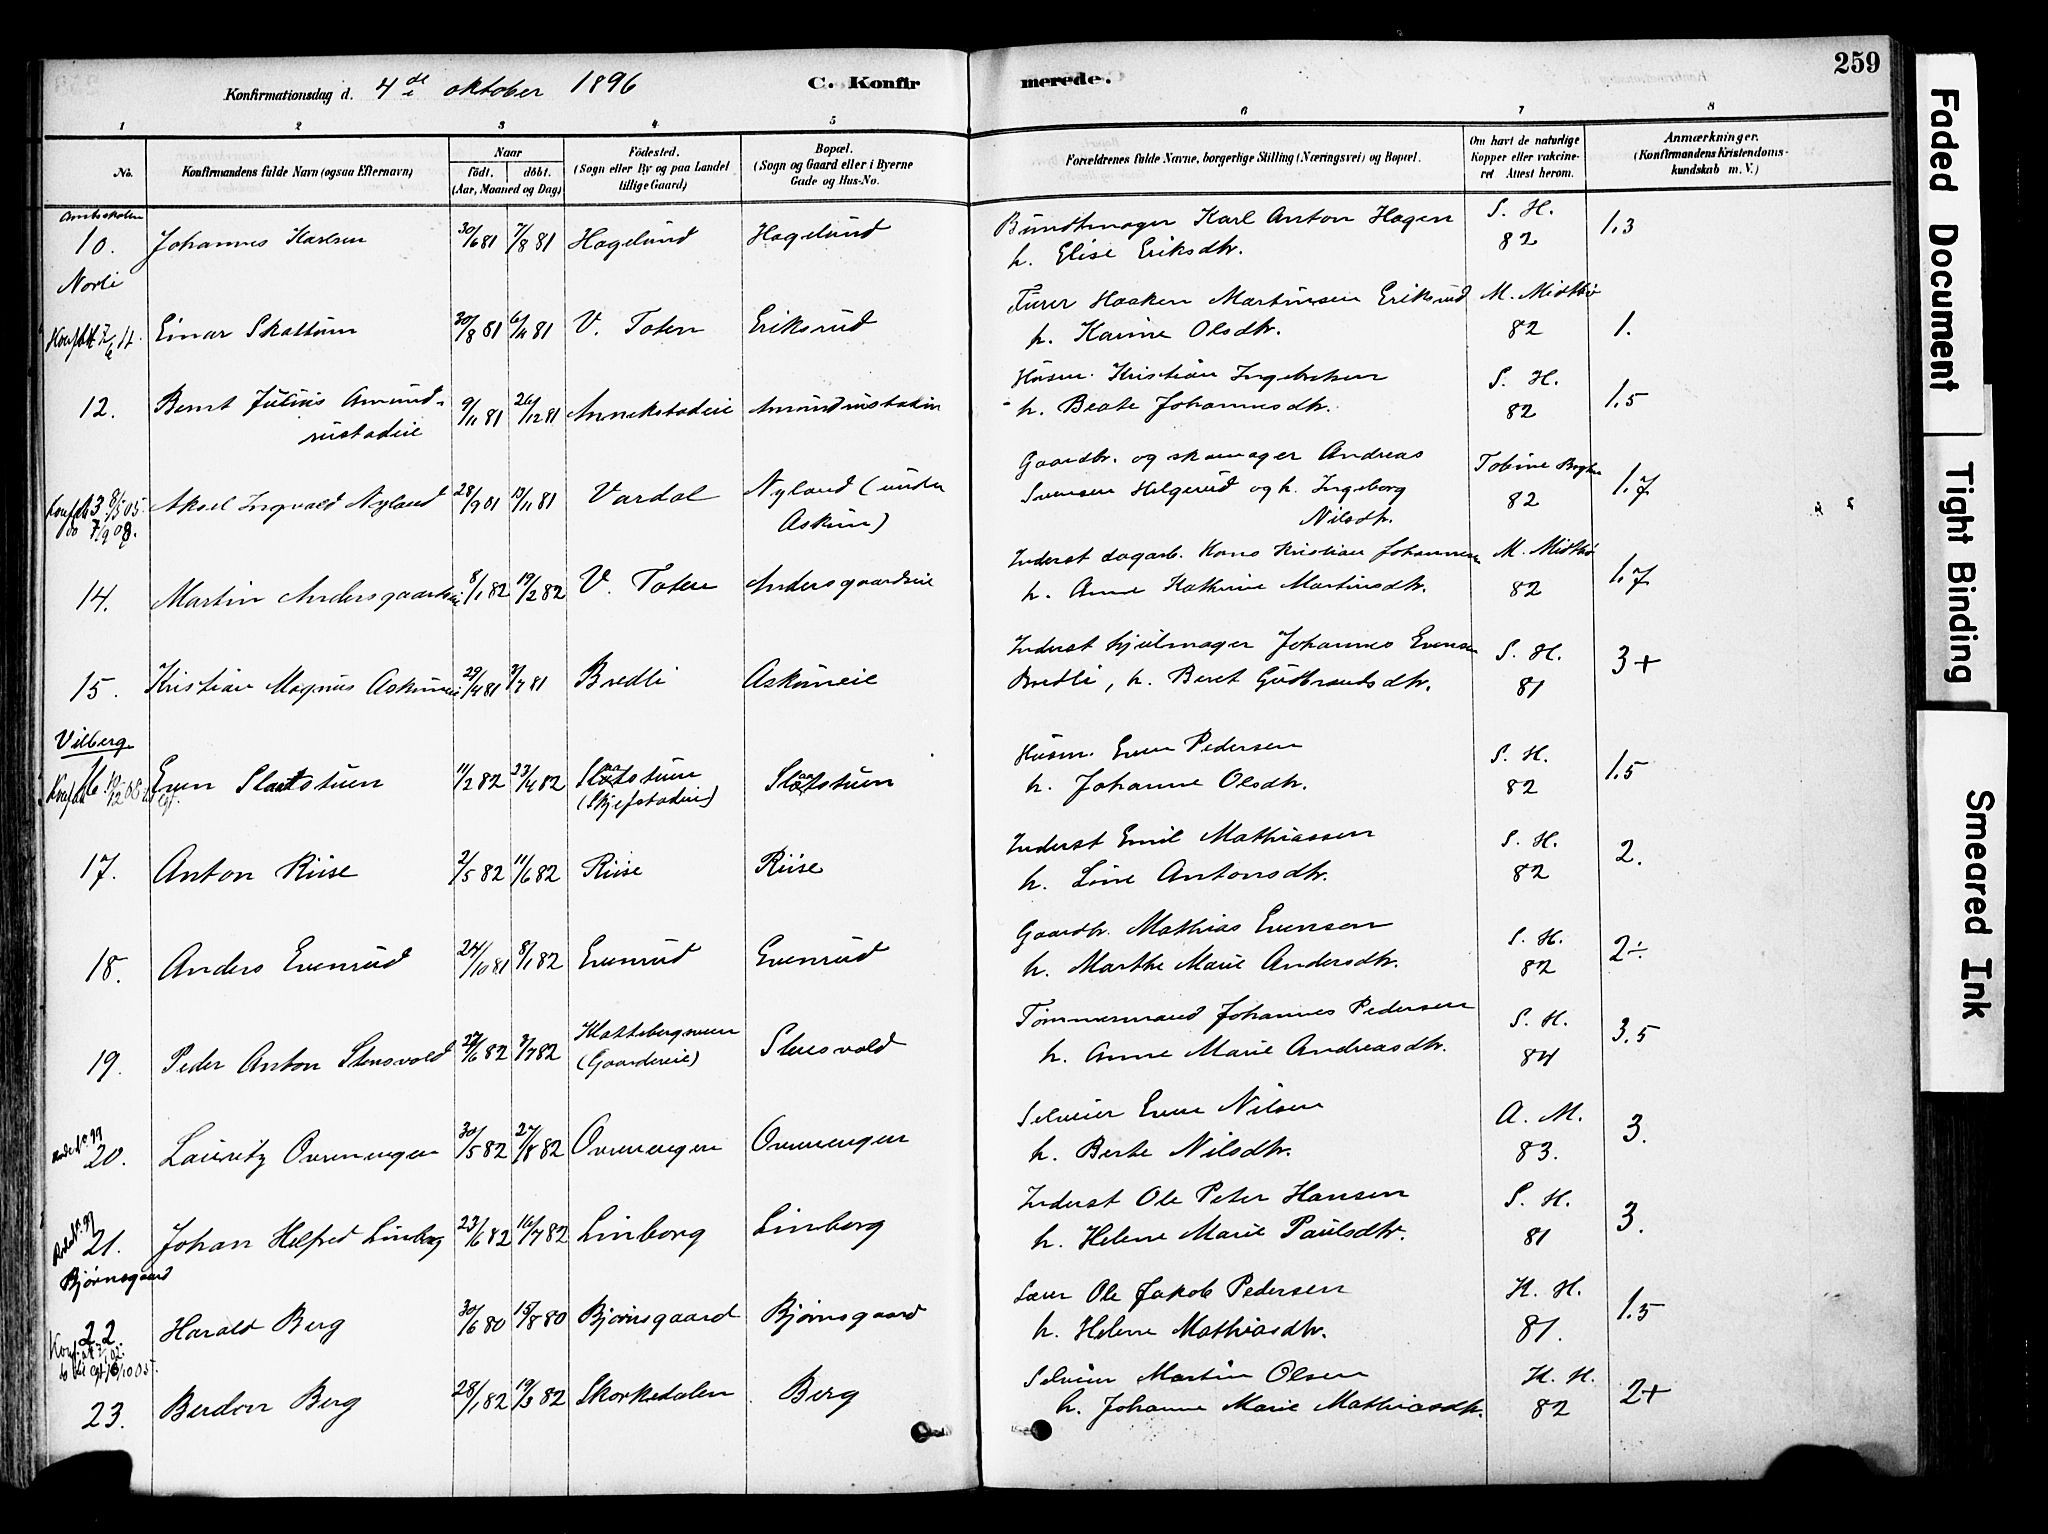 259
Konfirmationsdag d. 4de oktober 1896 C. Konfirmerede.
1 2 3 4 5 6 7 8
No.
Konfirmandens fulde Navn (ogsaa Efternavn)
Naar
födt. döbt.
(Aar, Maaned og Dag)
Födested.
(Sogn eller By og paa Landet
tillige Gaard)
Bopæl.
(Sogn og Gaard eller i Byerne
Gade og Hus-No.
Forældrenes fulde Navne, borgerlige Stilling (Næringsvei) og Bopæl.
Om havt de naturlige
Kopper eller vakcine-
ret Attest herom.
Anmærkninger.
(Konfirmandens Kristendoms-
kundskab m. V.)
Amtsskolen
10. Johannes Karlsen 30/6 81 7/8 81 Hagelund Hagelund Bundtmager Karl Anton Hagen S. H. 1.3
h. Elise Eriksdtr. 82
Norli
Einar Skattum 30/8 81 6/11 81 V. Toten Eriksrud Furer Haaken Martinsen Eriksrud M. Midtbö 1.
h. Karine Olsdtr. 82
12. Bernt Julius Amund- 9/11 81 26/12 81 Annekstadeie Husm. Kristian Ingebretsen S. H. 1.5
rustadeie h. Beate Johannesdtr. 82
Aksel Ingvald Nyland 28/9 81 13/11 81 Vardal Nyland (under Gaardbr. og skomager Andreas Tobine 1.7
Askim) Svensen Helgerud og h. Ingeborg 82
Nilsdtr.
14. Martin Andersgaardseie 8/1 82 19/2 82 V. Toten Andersgaardseie Inderst dagarb. Hans Kristian Johannesen M. Midtbö 1.7
h. Anne Kathrine Martinsdtr. 82
15. Kristian Magnus Askimeie 29/4 81 3/7 81 Bredli Askimeie Inderst hjulmager Johannes Evensen S. H. 3+
Bredli, h. Beret Gudbrandsdtr. 81
Vilberg
16 Even Slaatstuen 11/2 82 23/4 82 Slaatstuen Slaatstuen Husm. Even Pedersen S. H. 1.5
(Skjefstadeie) h. Johanne Olsdtr. 82
17. Anton Riise 2/5 82 11/6 82 Riise Riise Inderst Emil Mathiassen S. H. 2.
h. Line Antonsdtr. 82
18. Anders Evenrud 24/10 81 8/1 82 Evenrud Evenrud Gaardbr. Mathias Evensen S. H. 2÷
h. Marthe Marie Andersdtr. 82
19. Peder Anton Stensvold 82 82 Klattebergsveen Stensvold Tömmermand Johannes Pedersen S. H. 3.5
(Gaardereie) h. Anne Marie Andreasdtr. 84
20. Lauritz Overengen 30/5 82 27/8 82 Overengen Overengen Selveier Even Nilsen A. M. 3.
h. Berte Nilsdtr. 83.
21. Johan Helfred Linborg 23/6 82 16/7 82 Linborg Linborg Inderst Ole Peter Hansen S. H. 3.
h. Helene Marie Paulsdtr. 81
Bjørnsgaard
22 Harald Berg 30/6 80 15/8 80 Bjørnsgaard Bjørnsgaard Ole Jakob Pedersen K. H. 1.5
h. Helene Mathiasdtr. 81.
23. Berdon Berg 28/1 82 19/3 82 Skorkedalen Berg Selveier Martin Olsen K. H. 2+
h. Johanne Marie Mathiasdtr. 82
Faded Document
Tight Binding
Smeared Ink